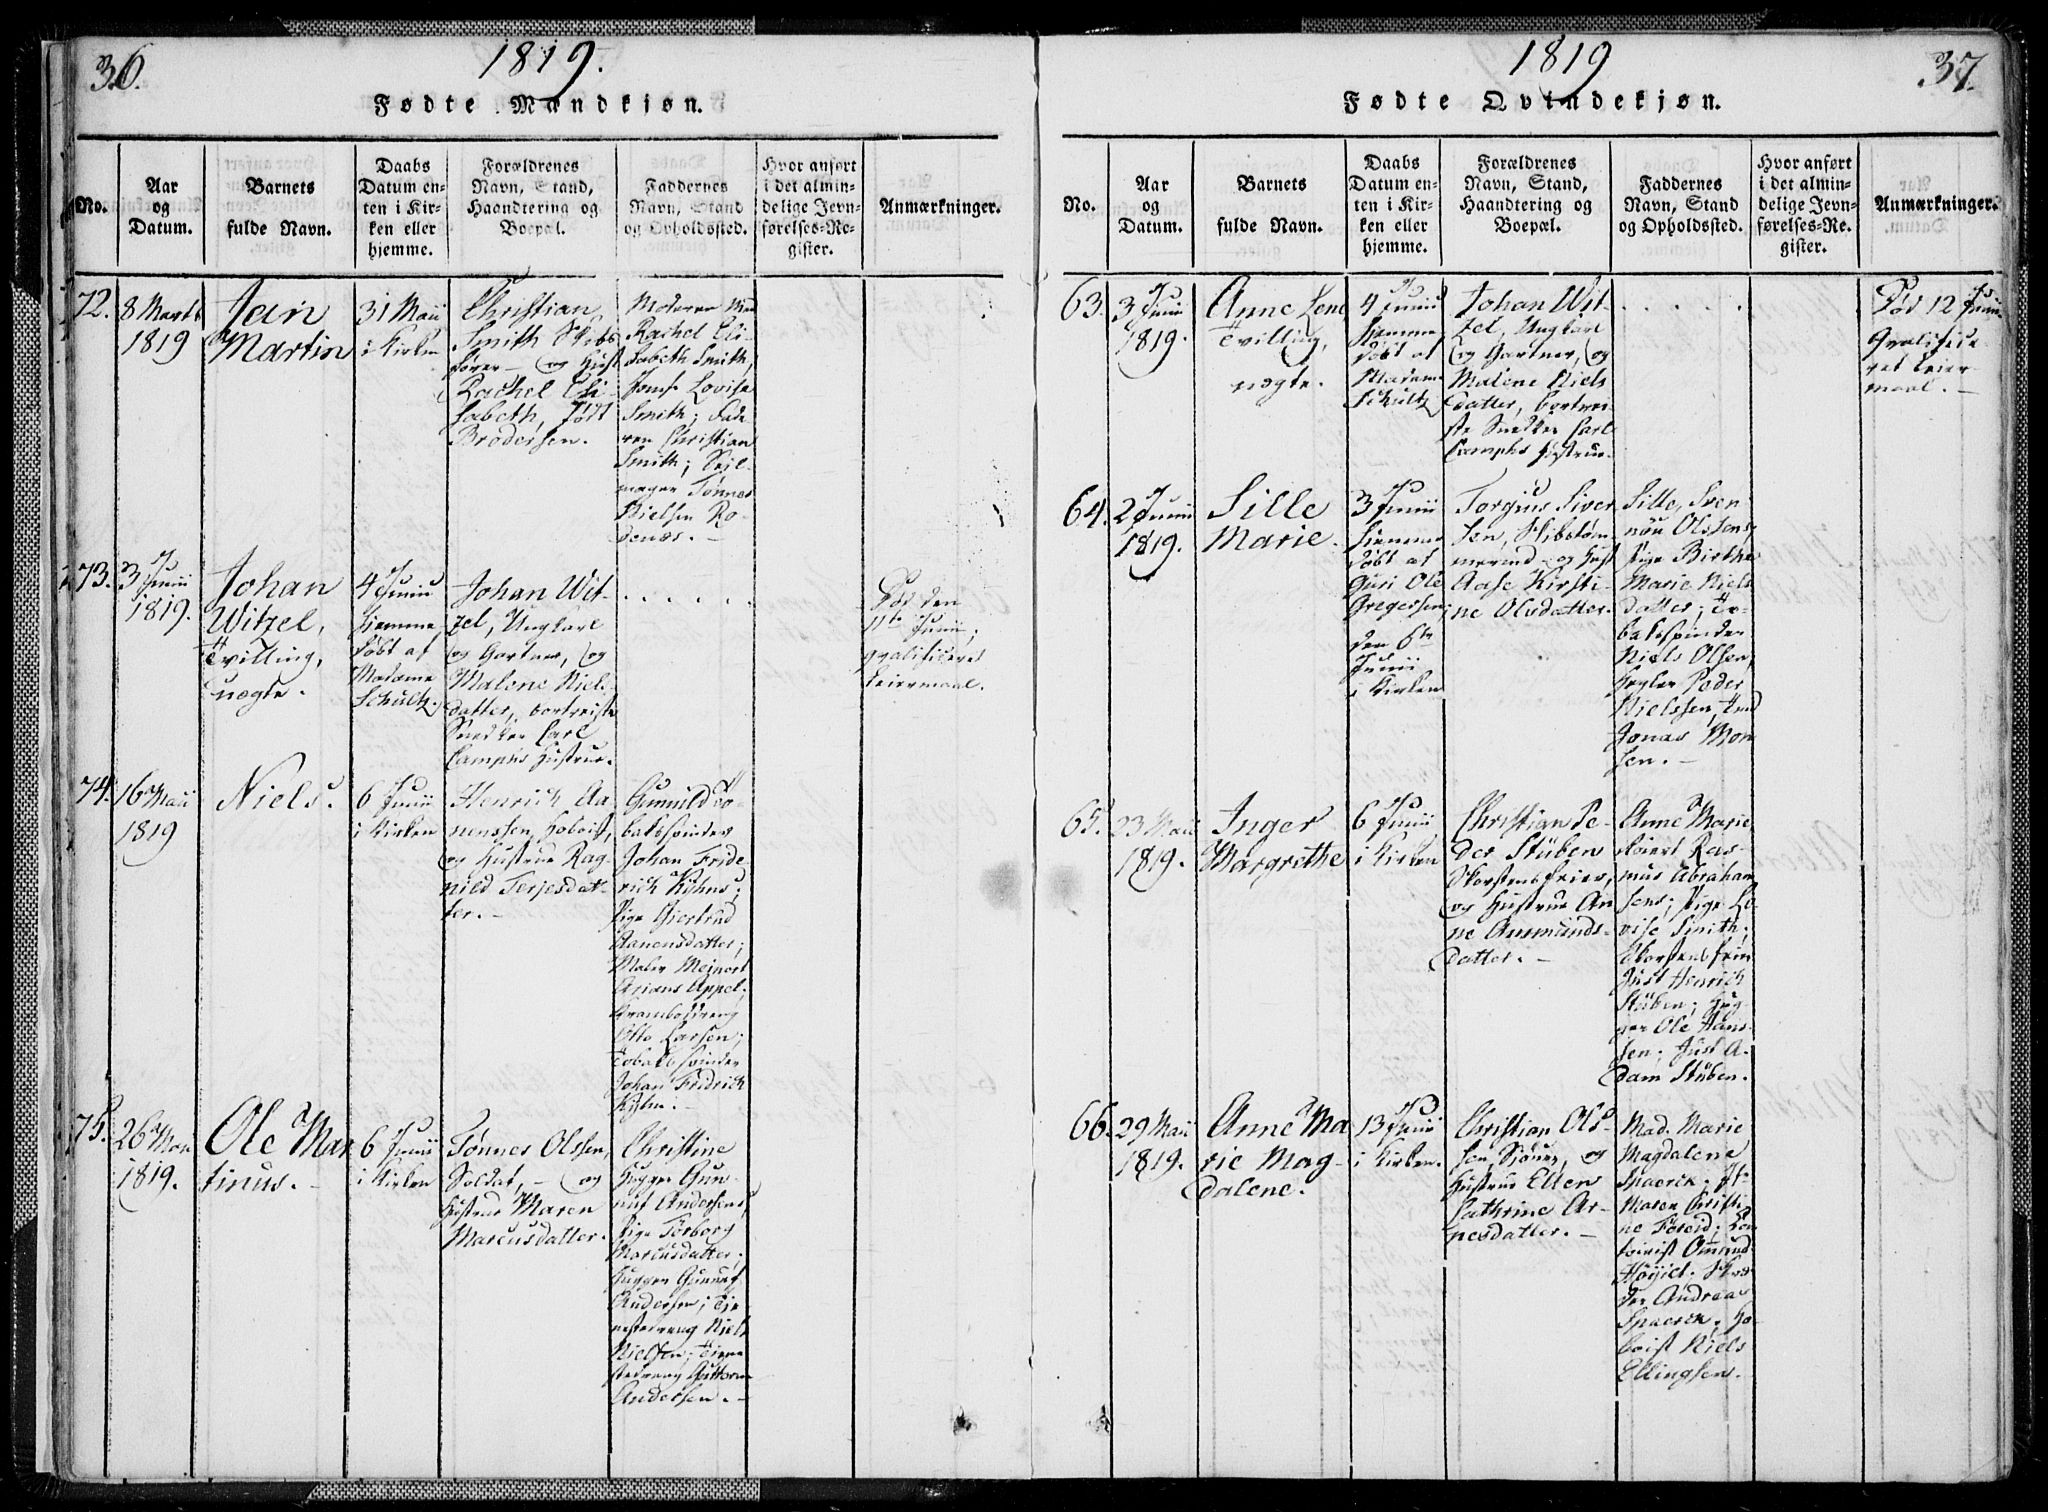 36.
1819.
Fødte Mandkjøn.
No.
Aar
og
Datum.
Barnets
fulde Navn.
Daabs
Datum en-
ten i Kir-
ken eller
hjemme.
Forældrenes
Navn, Stand,
Haandtering og
Boepæl.
Faddernes
Navn, Stand
og Opholdssted.
Hvor anført
i det almin-
delige Jevn-
førelses-Re-
gister.
Anmærkninger.
72.
8 Marts
1819
Jain
Martin
31 Maii
i Kirken
Christian
Smith Skibs
fører – og Hust
Rachel Eli-
sabeth, født
Brodersen.
Moderen Mad
Rachel Eli-
sabeth Smith,
Jomf. Lovise
Smith; Fade
ren Christian
Smith; Seil-
mager Tønnes
Nielsen Ro-
denæs. –
73.
3 Junii
1819.
Johan
Witzel,
Tvilling,
uægte.
4 Junii
hjemme
døbt af
Madame
Schultz.
Johan Wit-
zel, Ungkarl
og Gartner, og
Malene Niels
datter, bortreiste
Snedker Carl
Camphs Hustrue.
Død den
11te Junii;
qvalificeret
Leiermaal.
74.
16 Maii
1819
Niels.
6 Junii
i Kirken
Henrich Aa-
nenssen, Hoboist,
og Hustrue Rag-
nild Terjesdat-
ter. –
Gunnild To-
baksspinder
Johan Fride-
rich Kyhns;
Pige Giertrud
Aanensdatter;
Maler Mejnert
Arians Appel;
Kramboddreng
Otto Larsen;
Tobaksspinder
Johan Fridrich
Kyhn. –
75.
26 Maii
1819.
Ole Mar
tinus. –
6 Junii
i Kirken
Tønnes Olssen,
Soldat, – og
Hustrue Maren
Marcusdatter.
Christine
Hugger Gun-
nuf Andersens,
Pige Torborg
Marcusdatter;
Hugger Gunnuf
Andersen; Tje-
nestedreng Niels
Nielsen; Tjene
stedreng Guttorm
Andersen. –
1819
37.
Fødte Qvindekjøn.
No.
Aar
og
Datum.
Barnets
fulde Navn.
Daabs
Datum en-
ten i Kir-
ken eller
hjemme.
Forældrenes
Navn, Stand,
Haandtering og
Boepæl.
Faddernes
Navn, Stand
og Opholdssted.
Hvor anført
i det almin-
delige Jevn-
førelses-Re-
gister.
Anmærkninger.
63.
3 Junii
1819.
Anne Lene
Tvilling,
uægte.
4 Junii
hjemme
døbt af
Madam
Schultz
Johan Wit-
zel, Ungkarl
og Gartner, og
Malene Niels
datter, bortrei-
ste Snedker Carl
Camphs Hustrue.
Død 12 Junii
Qvalifice-
ret Leier-
maal. –
64.
2 Junii
1819.
Sille
Marie.
3 Junii
hjemme
døbt af
Guri Ole
Gregersen;
den 6te
Junii
i Kirken
Torgius Siver
sen, Skibstøm-
mermd og Hust
Aase Kirsti-
ne Olsdatter.
Sille, Sven
nou Olssens,
Pige Birthe
Marie Niels
datter; To-
baksspinder
Niels Olsen,
Hegler Peder
Nielssen, Tmd
Jonas Mon
sen. –
65.
23 Maii
1819.
Inger
Margrethe
6 Junii
i Kirken
Christian Pe-
der Stüben
Skorstensfeier,
og Hustrue An
ne Aasmunds-
datter. –
Anne Marie
Ras-
mus Abraham
sens; Pige Lo-
vise Smith;
Skorstensfeier
Just Henrich
Stüben; Hug-
ger Ole Hans-
sen; Just A-
dam Stüben.
66.
29 Maii
1819.
Anne Ma
rie Mag-
dalene.
13 Junii
i Kirken.
Christian Ols-
sen, Siømd, og
Hustrue Ellen
Cathrine Ar-
nesdatter. –
Mad. Marie
Magdalene
Spaerck; Jf.
Maren Christi-
ne Foreid; Con
toirist Omund
Høyiel;
Andreas
Spaerck, Ho-
boist Niels
Ellingsen.